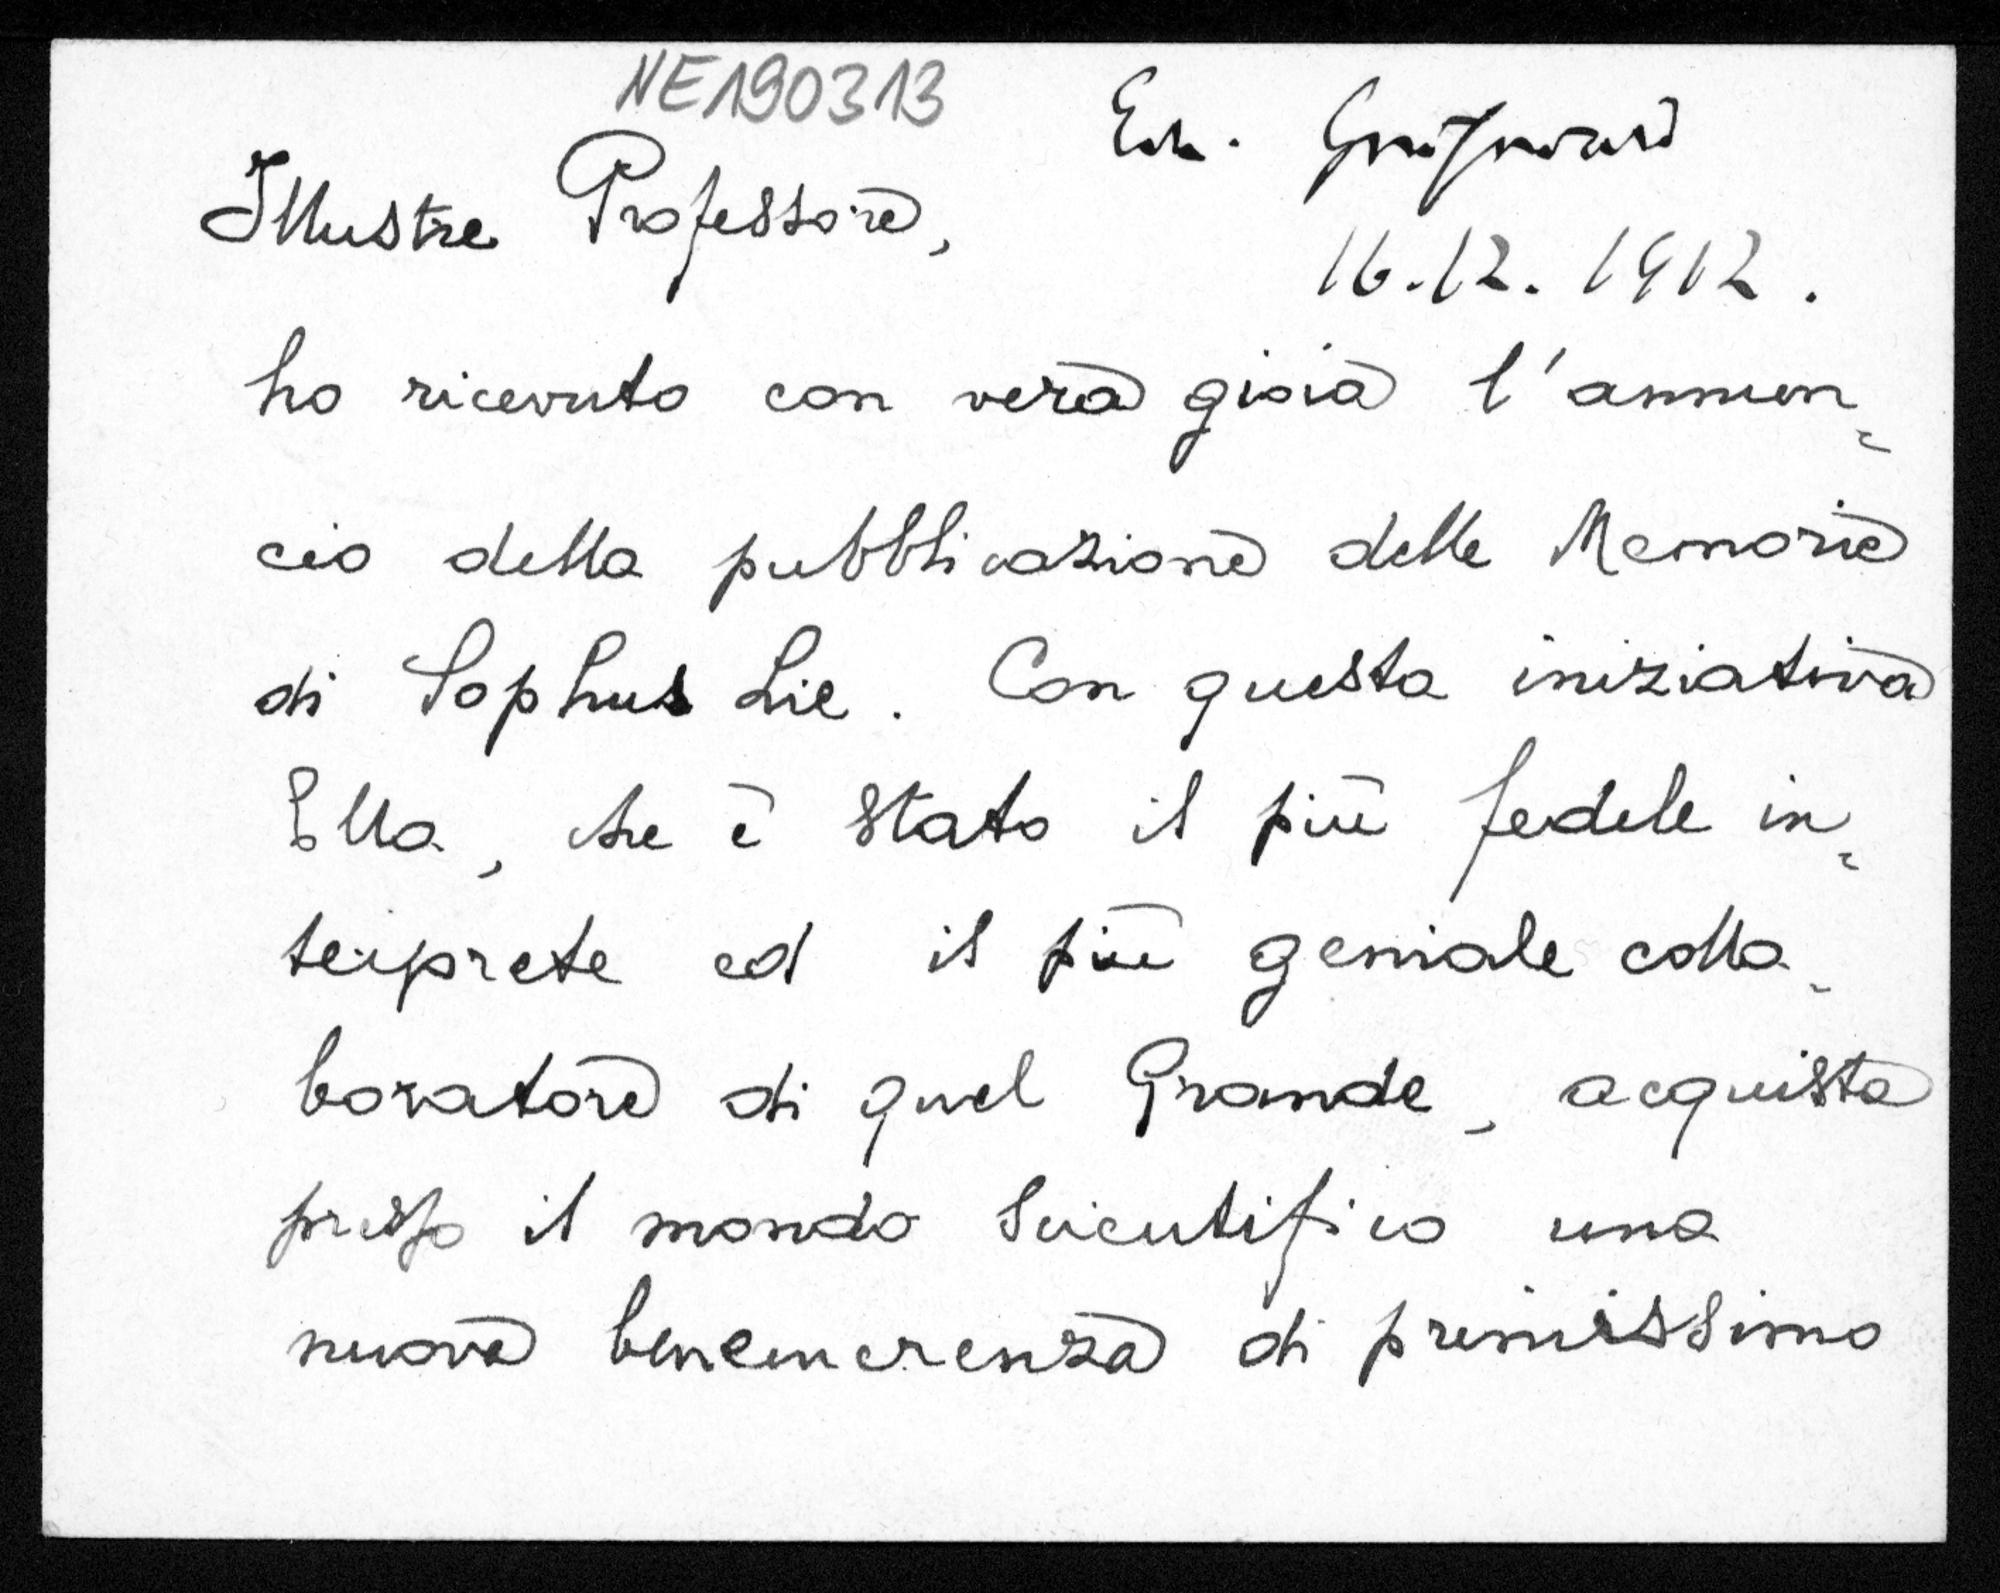 NE190313
Illustre Professore,
16.12.1912.
ho ricevuto con vera gioia l'annun=
cio della pubblicazione delle Memorie
di Sophus Lie. Con questa iniziativa
Ella, che è stato il più fedele in=
terprete ed il più geniale colla-
boratore di quel Grande, acquista
presso il mondo scientifico una
nuova benemerenza di primissimo